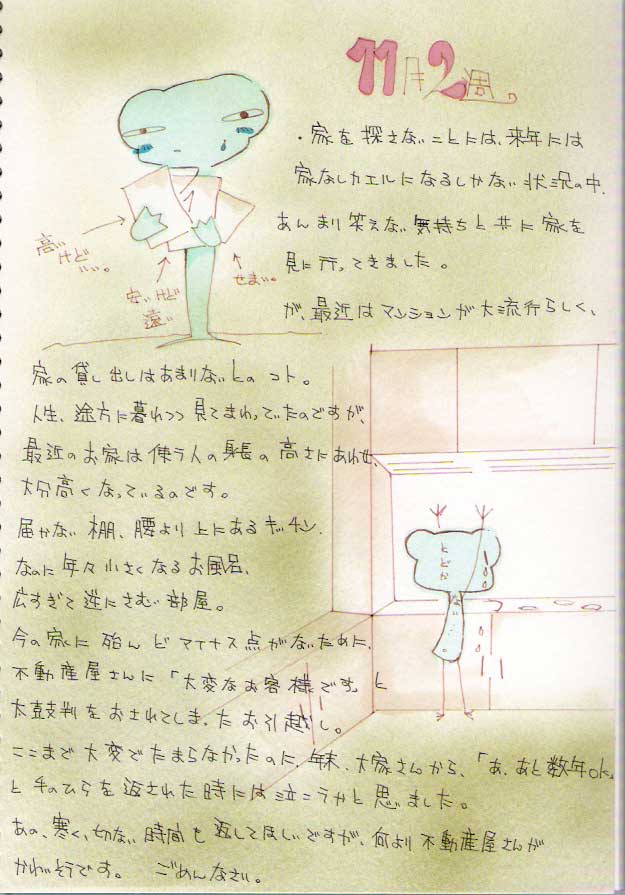 11月2週。
・家を探さないことには、来年には
家なしカエルになるしかない状況の中、
あんまり笑えない気持ちと共に家を
見に行ってきました。
が、最近はマンションが大流行らしく、
高い
けど
いい。
安いけど
遠い
せまい。
家の貸し出しはあまりないとのコト。
人生、途方に暮れつつ見てまわっていたのですが、
最近のお家は使う人の身長の高さにあわせ、
大分高くなっているのです。
届かない棚、腰より上にあるキッチン、
なのに年々小さくなるお風呂、
広すぎて逆にさむい部屋。
今の家に殆んどマイナス点がないために、
不動産屋さんに「大変なお客様です」と
太鼓判をおされてしまったお引越し。
ここまで大変でたまらなかったのに、年末、大家さんから、「あ、あと数年ok」
と手のひらを返された時には泣こうかと思いました。
あの、寒く、切ない時間も返してほしいですが、何より不動産屋さんが
かわいそうです。 ごめんなさい。
とどか
ない